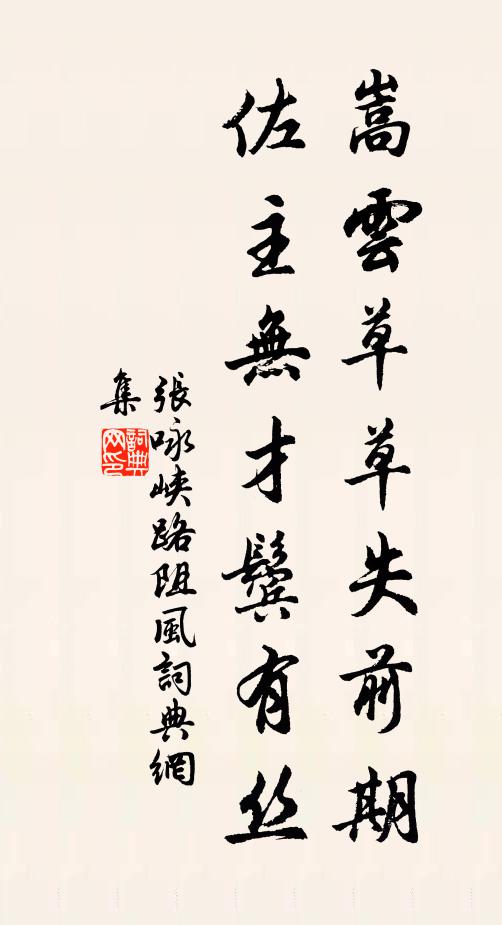 嵩雲草草失前期
佐主無才鬢有丝
張咏峡路阻風詞典網
集
詞典
网印